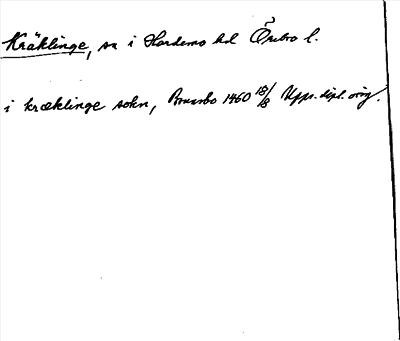 Kräklinge, sn i Hardemo hd Örebro l.
i kræklinge sokn, Brunsbo 1460 18/8 Upps. dipl. orig.